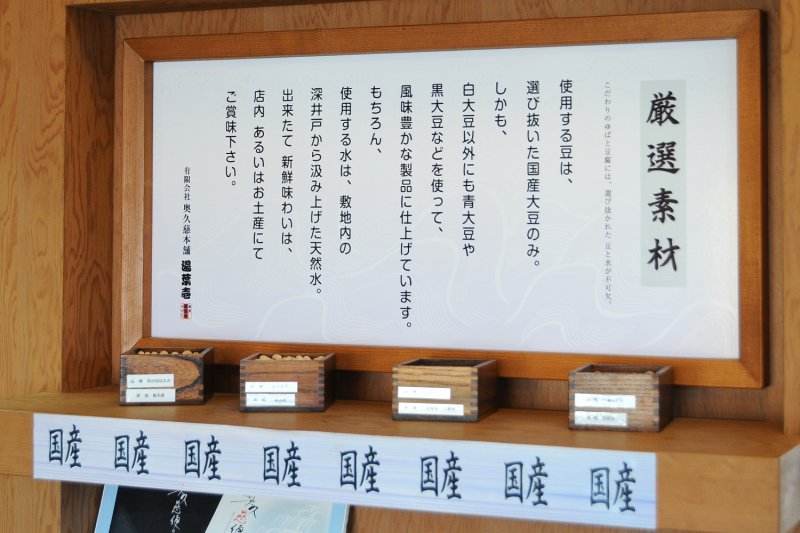 厳選素材
こだわりのゆばと豆腐には、選び抜かれた豆と水が不可欠。
使用する豆は、
選び抜いた国産大豆のみ。
しかも、
白大豆以外にも青大豆や
黒大豆などを使って、
風味豊かな製品に仕上げています。
もちろん、
使用する水は、敷地内の
深井戸から汲み上げた天然水。
出来たて 新鮮味わいは、
店内 あるいはお土産にて
ご賞味下さい。
有限会社 奥久慈本舗 湯葉壱
国産 国産 国産 国産 国産 国産 国産 国産